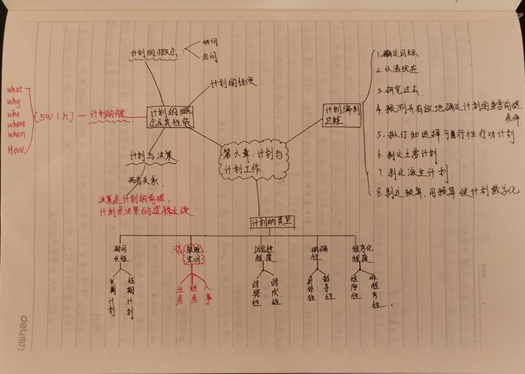 计划的概念
动词
名词
计划的性质
what
why
who
where
when
How
(5W1H)
计划内容
计划的概念及其性质
计划与决策
两者关系
决策是计划的前提,
计划是决策的逻辑延续
第六章:计划与
计划工作
计划编制
过程
1.确定目标
2.认清现在
3.研究过去
4.预测并有效地确定计划的重要前提
条件
5.拟订和选择可行性行动计划
6.制定主要计划
7.制定派生计划
8.制定预算,用预算使计划数字化
计划的类型
时间
长短
长期计划
短期计划
职能
空间
业务
财务
人事
程度
明确
性
具体性
指导性
程序化
程度
程序性
非程序性
deli